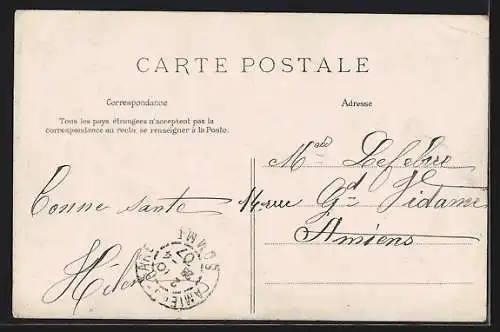 CARTE POSTALE
Correspondance
Adresse
Tous les pays étrangers n'acceptent pas la
correspondance au recto, se renseigner à la Poste.
Lefebvre
Bonne santé
14 rue Gd Vidame
Amiens
Hélène
SOMME
07